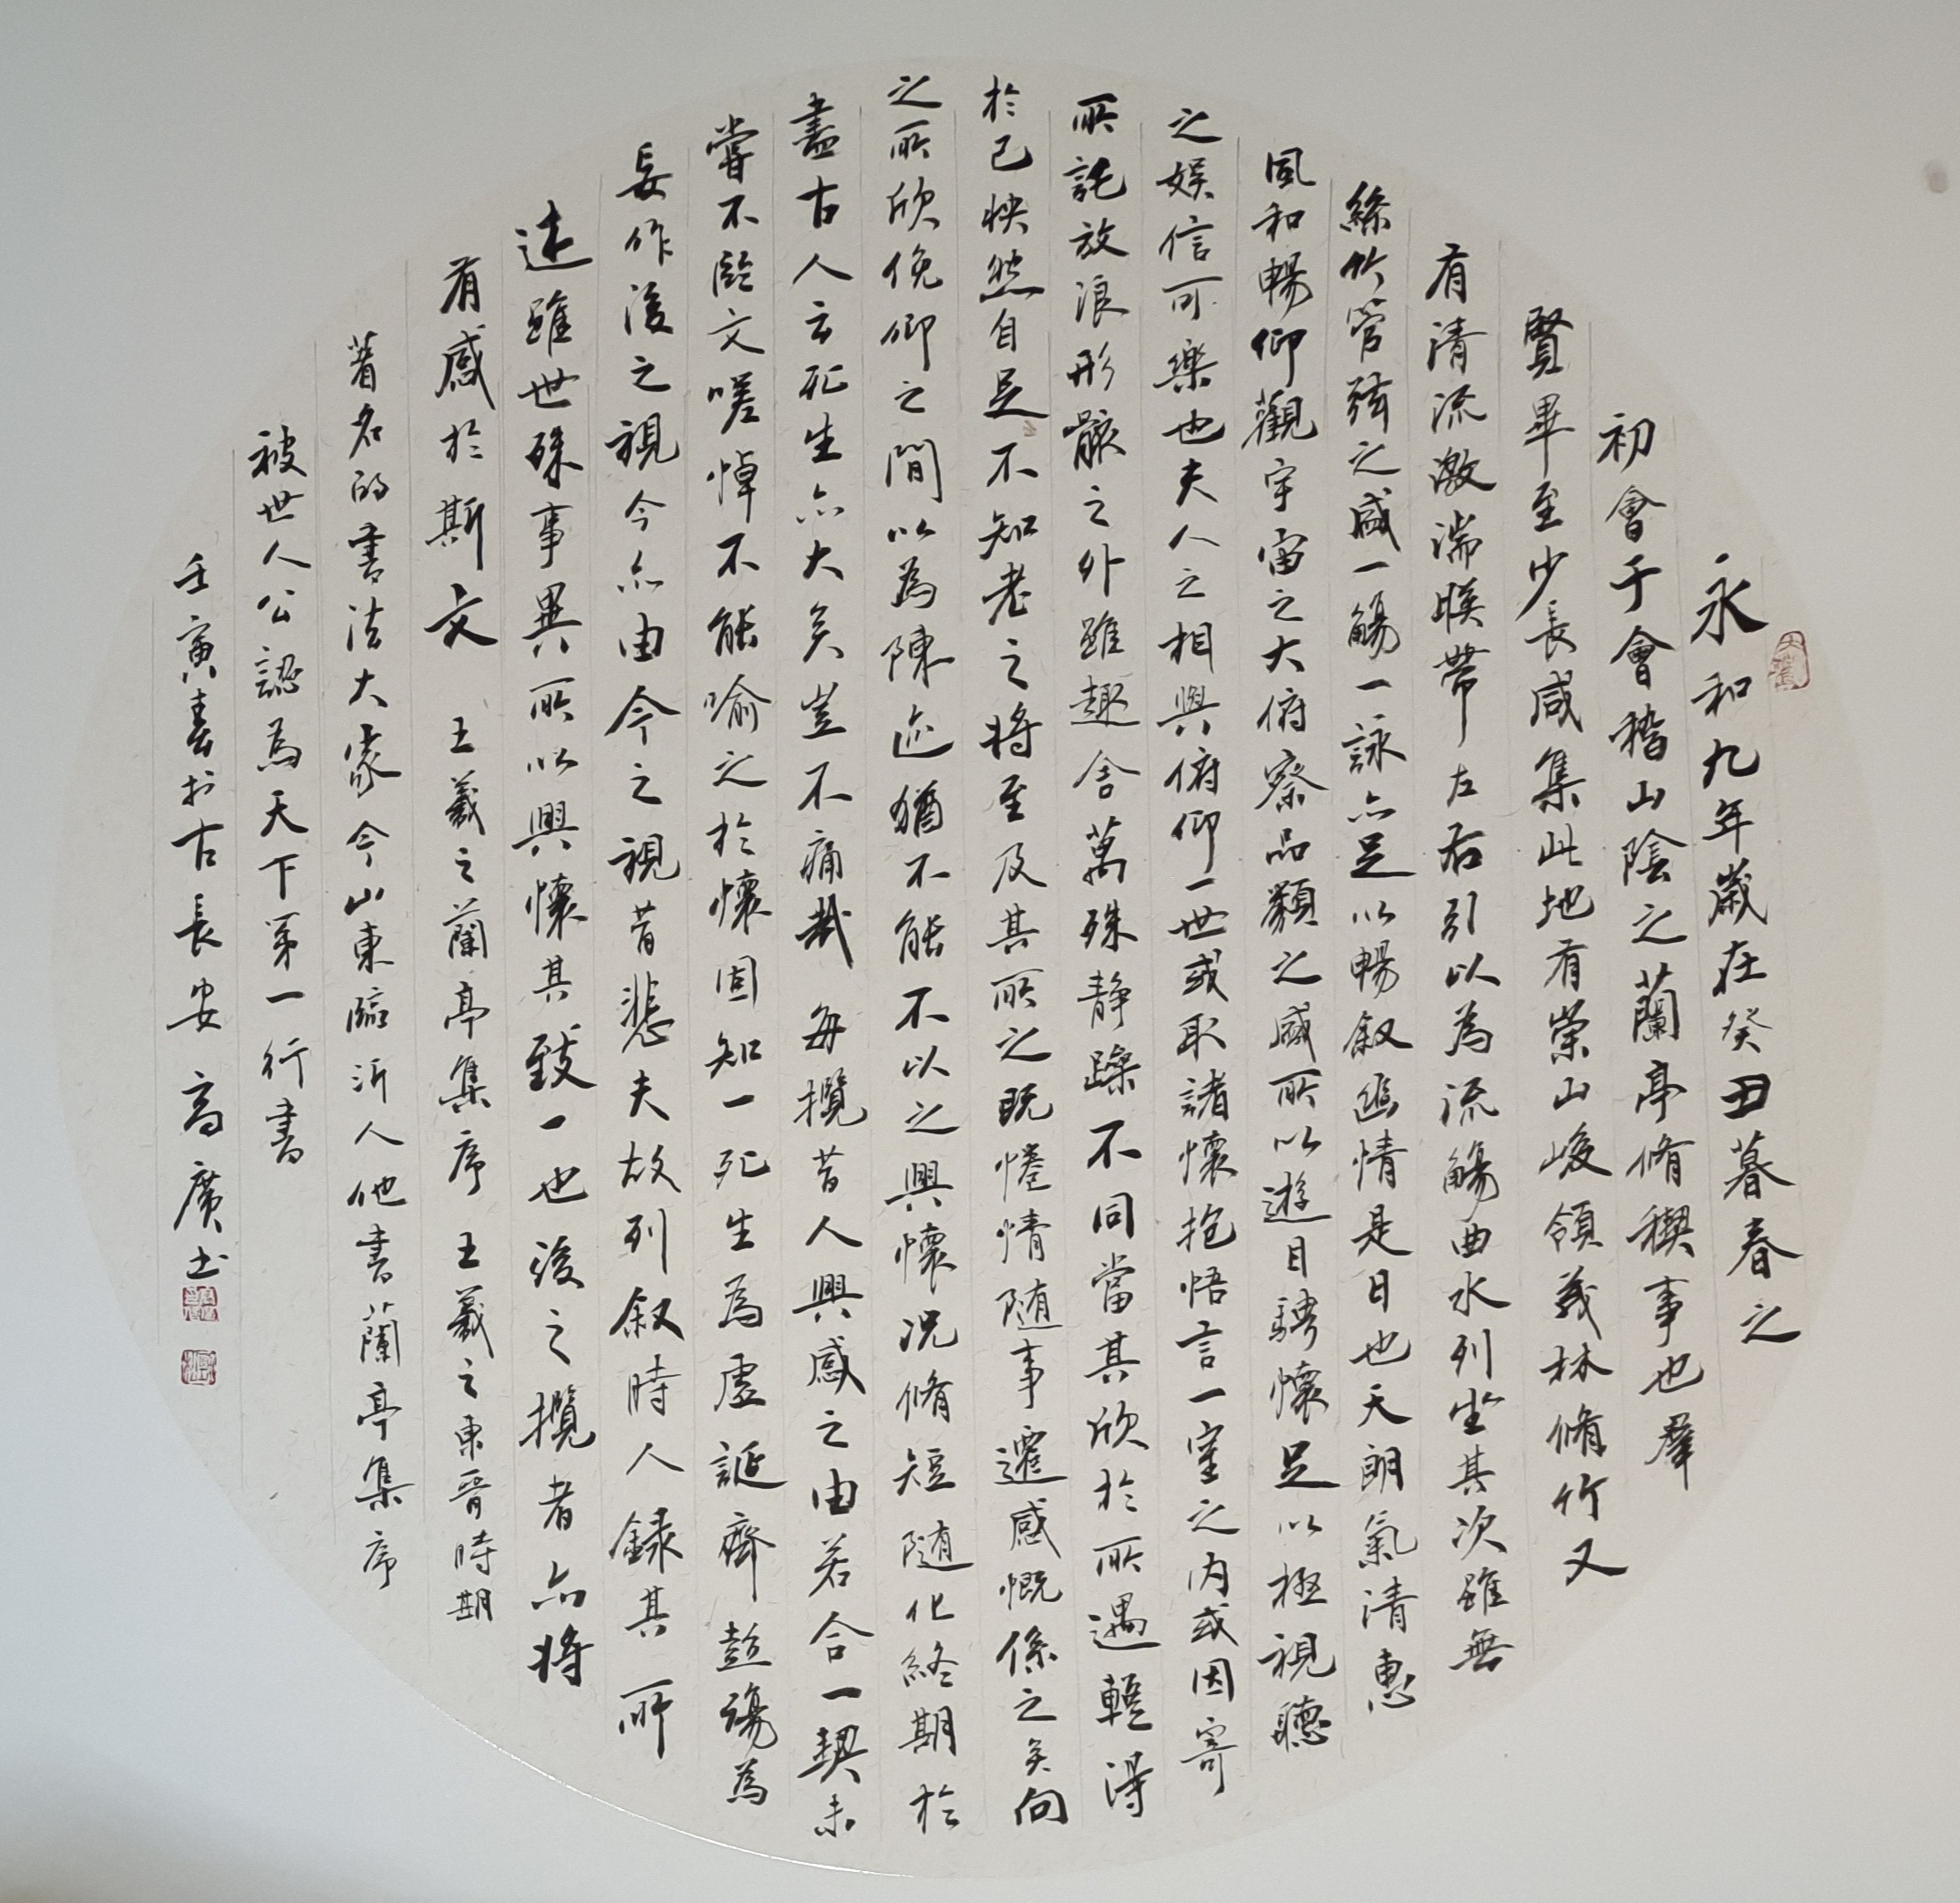 永和九年歲在癸丑暮春之
初會于會稽山陰之蘭亭脩稧事也羣
賢畢至少長咸集此地有崇山峻領茂林脩竹又
有清流激湍暎帶左右引以為流觴曲水列坐其次雖無
絲竹管弦之盛一觴一詠亦足以暢叙幽情是日也天朗氣清惠
風和暢仰觀宇宙之大俯察品類之盛所以遊目騁懷足以極視聽
之娱信可樂也夫人之相與俯仰一世或取諸懷抱悟言一室之内或因寄
所託放浪形骸之外雖趣舍萬殊静躁不同當其欣於所遇輕得
於己怏然自足不知老之將至及其所之既惓情随事遷感慨係之矣向
之所欣俛仰之間以為陳迹猶不能不以之興懷况脩短随化終期於
盡古人云死生亦大矣豈不痛哉每攬昔人興感之由若合一契未
嘗不臨文嗟悼不能喻之於懷固知一死生為虛誕齊彭殤為
妄作後之視今亦由今之視昔悲夫故列叙時人録其所
述雖世殊事異所以興懷其致一也後之攬者亦將
有感於斯文 王羲之蘭亭集序 王羲之東晋時期
著名的書法大家今山東臨沂人他書蘭亭集序
被世人公認為天下第一行書
壬寅春於古長安 高廣